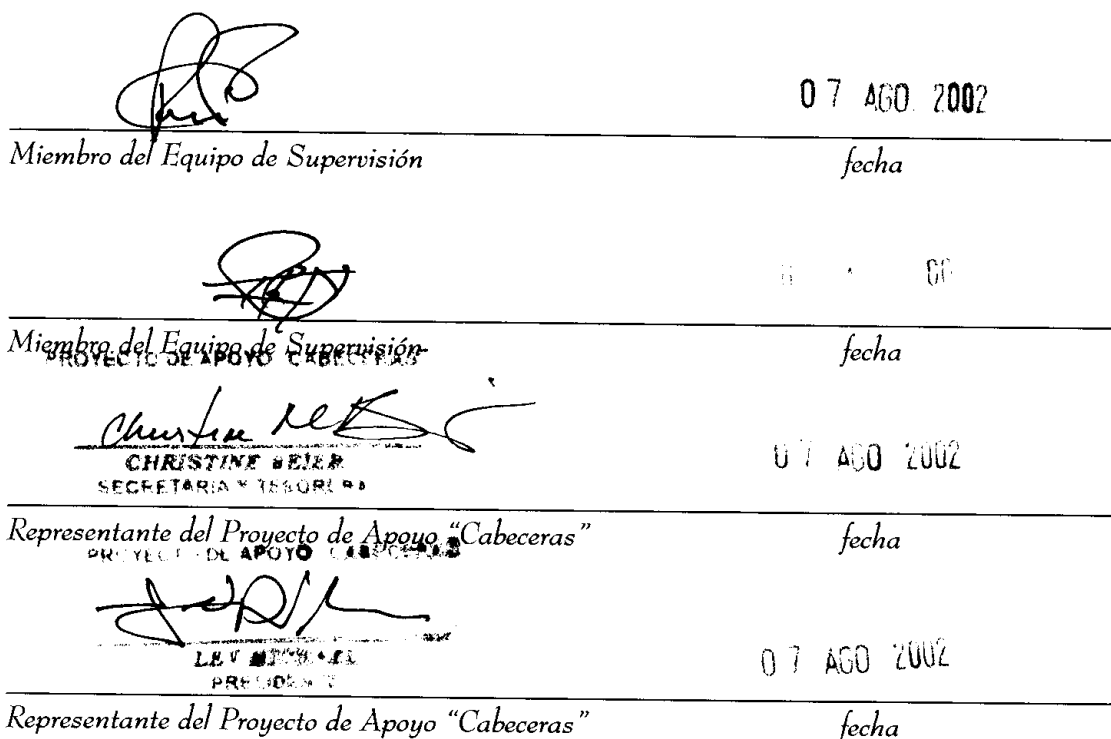 07 AGO. 2002
Miembro del Equipo de Supervisión fecha
Miembro del Equipo de Supervisión fecha
PROYECTO DE APOYO CABECERAS
Christine
CHRISTINE BEIER
SECRETARIA Y TESORERA
07 AGO 2002
Representante del Proyecto de Apoyo "Cabeceras" fecha
PROYECTO DE APOYO CABECERAS
LEV MICHAEL
PRESIDENT
07 AGO 2002
Representante del Proyecto de Apoyo "Cabeceras" fecha